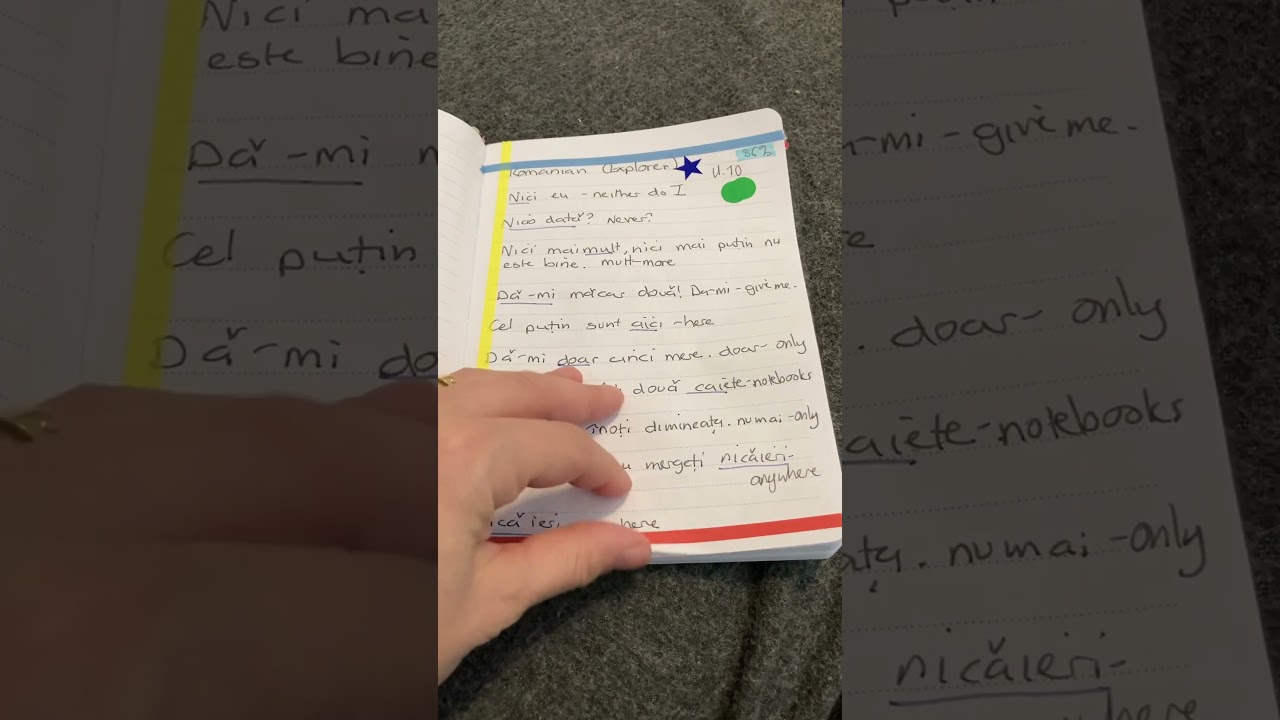 Romanian (Explorer) U.10
86%
Nici eu - neither do I
Nicio dată? Never?
Nici mai mult, nici mai puțin nu
este bine. mult-more
Dă-mi măcar două! Da-mi - give me.
Cel puțin sunt aici - here
Dă-mi doar cinci mere. doar- only
două caiete-notebooks
înoți dimineața. numai -only
mergeți nicăieri-
anywhere
here